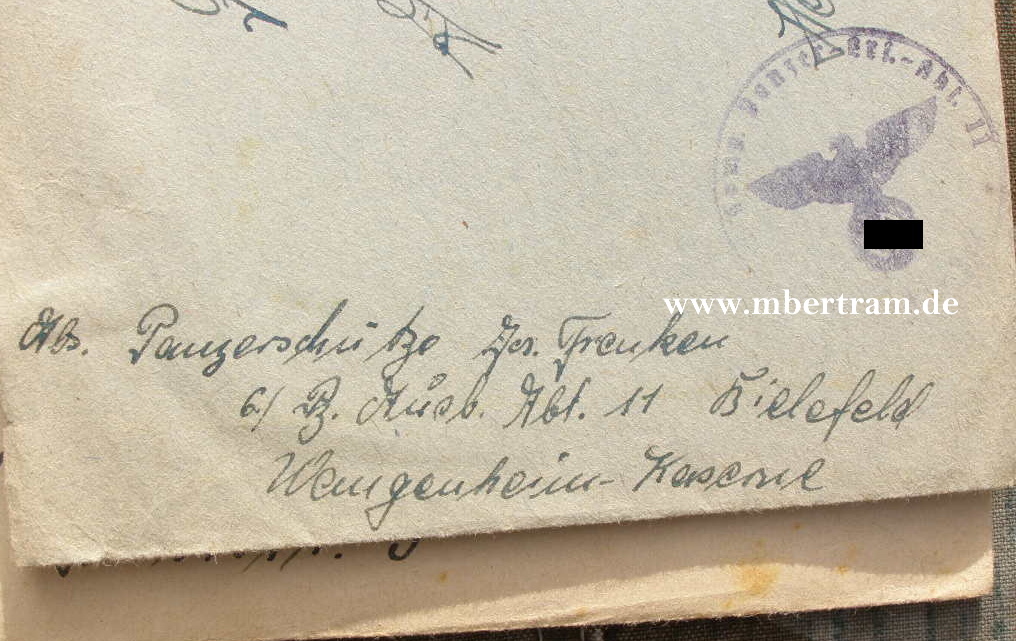 Panzer-Ers.-Abt. 11
www.mbertram.de
Abs. Panzerschütze Jos. Franken
6/ Pz. Ausb. Abt. 11 Bielefeld
Wangenheim-Kaserne